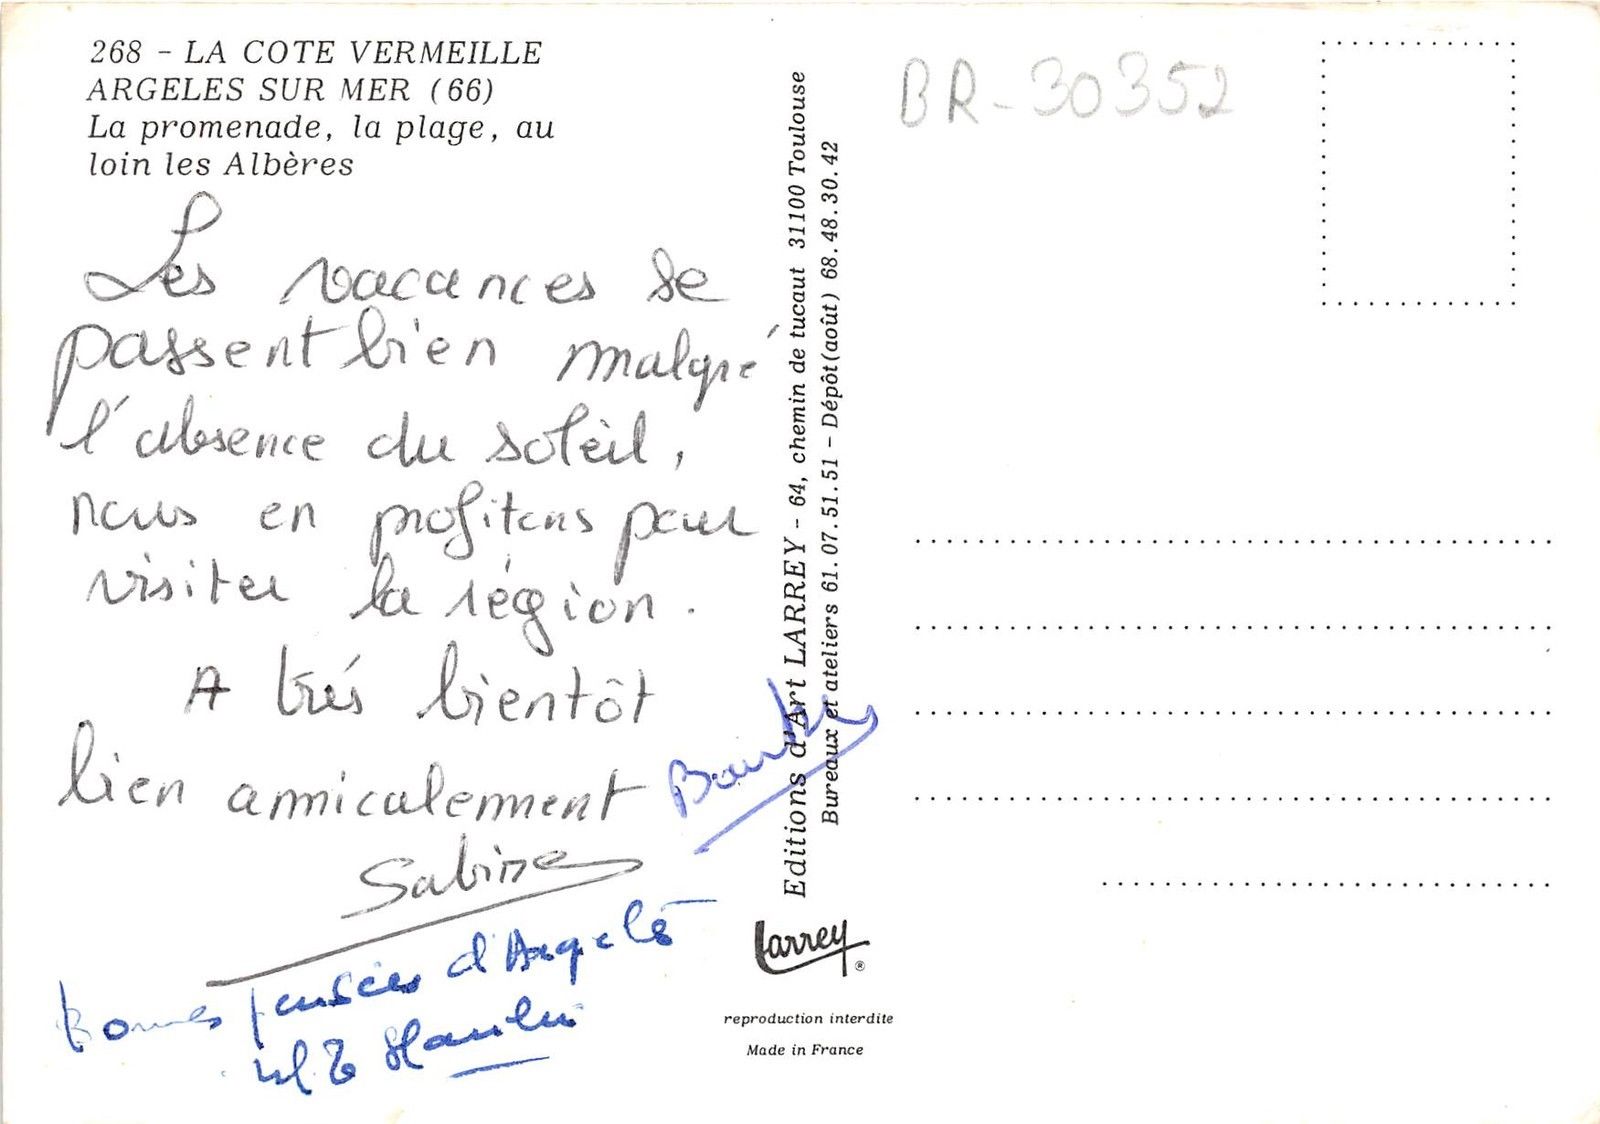 268 - LA COTE VERMEILLE
ARGELES SUR MER (66)
La promenade, la plage, au
loin les Albères
Les vacances se
passent bien malgré
l'absence du soleil,
nous en profitons pour
visiter la région.
A trés bientôt
bien amicalement
Sabine
Bonnes pensées d'Argelès
Editions d'Art LARREY - 64, chemin de tucaut 31100 Toulouse
Bureaux et ateliers 61.07.51.51 - Dépôt (août) 68.48.30.42
Larrey ®
reproduction interdite
Made in France
BR-30352